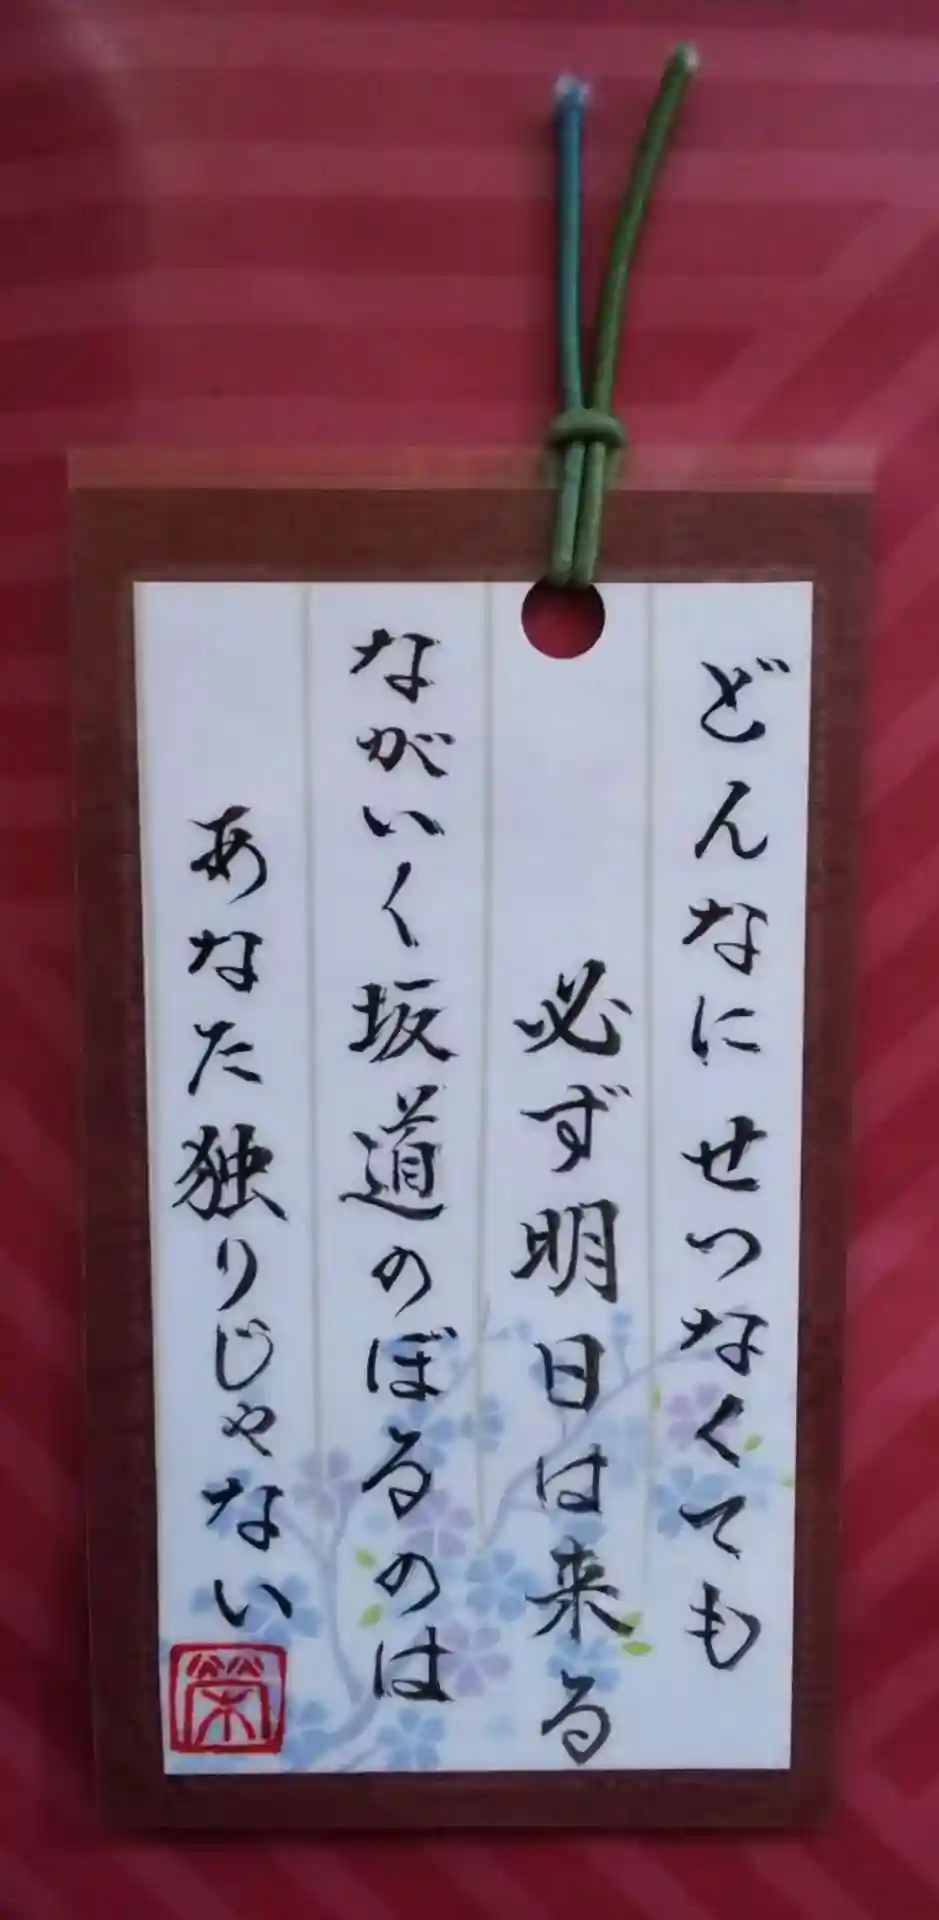 どんなに せつなくても
必ず明日は来る
ながいく坂道のぼるのは
あなた独りじゃない
榮